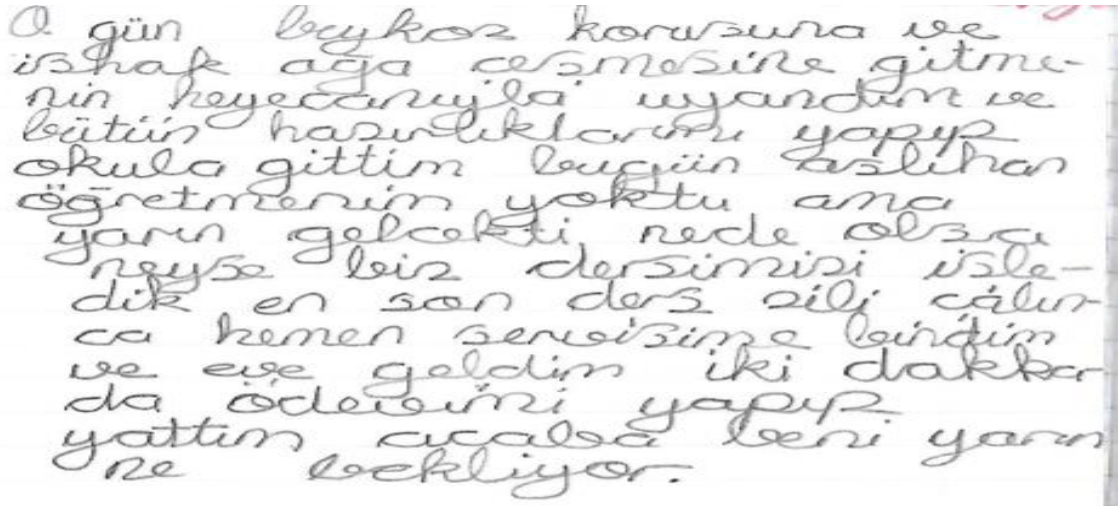 O gün beykoz korusuna ve
ishak ağa ceşmesine gitme-
nin heyecanıyla uyandım ve
bütün hazırlıklarımı yapıp
okula gittim bugün aslıhan
öğretmenim yoktu ama
yarın gelcekti nede olsa
neyse biz dersimizi işle-
dik en son ders zili çalın-
ca hemen servisime bindim
ve eve geldim iki dakka-
da ödevimi yapıp
yattım acaba beni yarın
ne bekliyor.